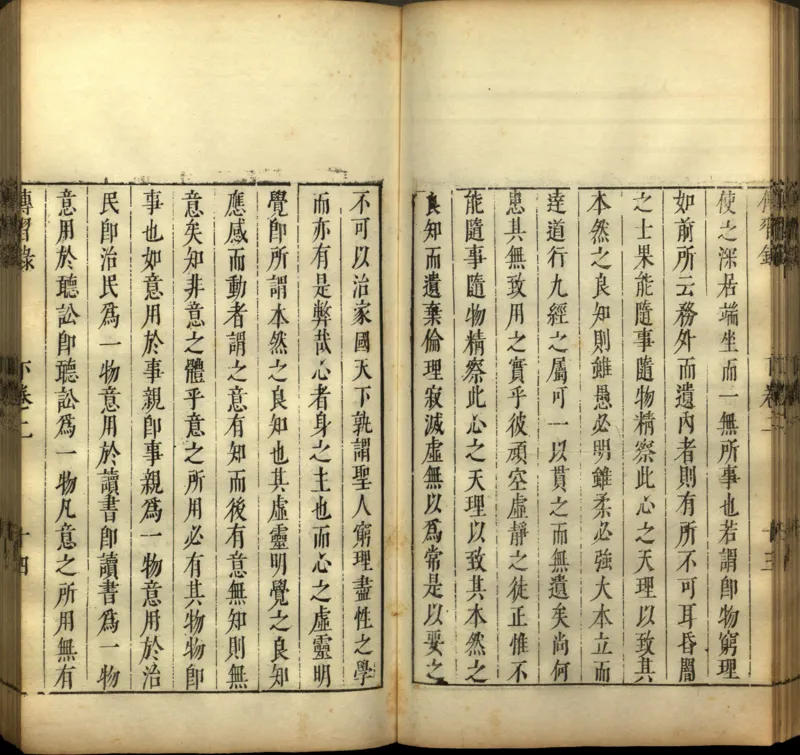 傳習錄 下卷二 十三
使之深居端坐而一無所事也若謂卽物窮理
如前所云務外而遺內者則有所不可耳昏闇
之士果能隨事隨物精察此心之天理以致其
本然之良知則雖愚必明雖柔必強大本立而
達道行九經之屬可一以貫之而無遺矣尚何
患其無致用之實乎彼頑空虛靜之徒正惟不
能隨事隨物精察此心之天理以致其本然之
良知而遺棄倫理寂滅虛無以爲常是以要之
不可以治家國天下孰謂聖人窮理盡性之學
而亦有是弊哉心者身之主也而心之虛靈明
覺卽所謂本然之良知也其虛靈明覺之良知
應感而動者謂之意有知而後有意無知則無
意矣知非意之體乎意之所用必有其物物卽
事也如意用於事親卽事親爲一物意用於治
民卽治民爲一物意用於讀書卽讀書爲一物
意用於聽訟卽聽訟爲一物凡意之所用無有
傳習錄 下卷二 十四